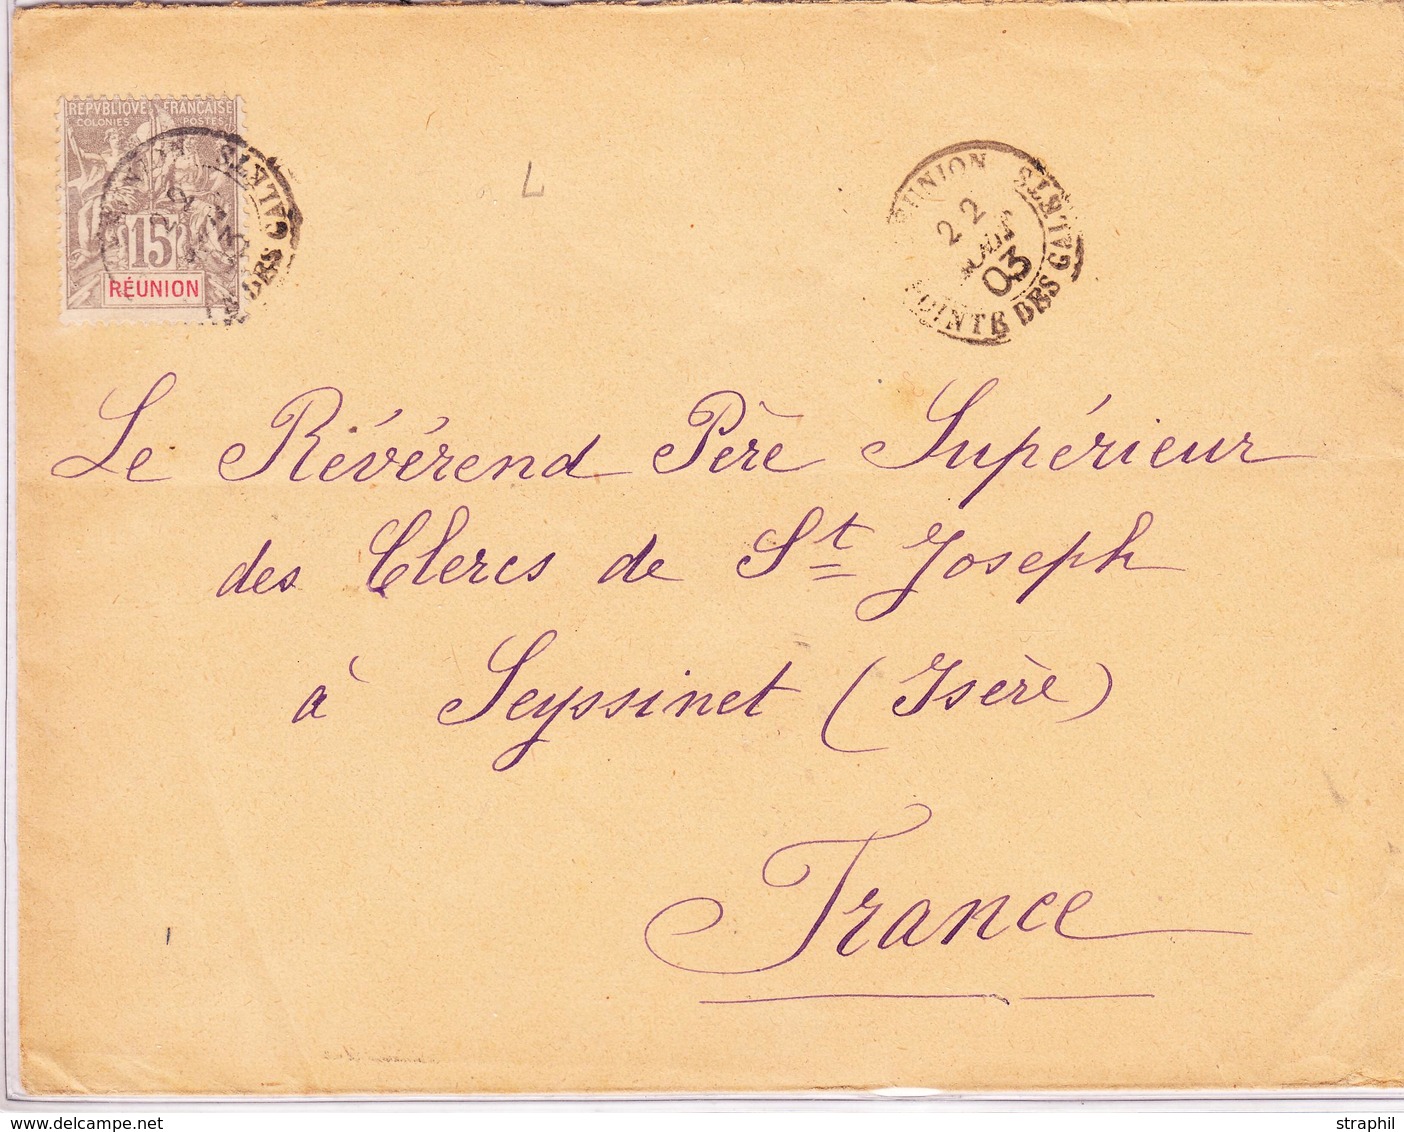 REPVBLIQVE FRANÇAISE
COLONIES POSTES
15
RÉUNION
RÉUNION
GALETS
L
RÉUNION
22
03
POINTE DES GALETS
Le Révérend Père Supérieur
des Clercs de St Joseph
à Seyssinet (Isère)
France
straphil